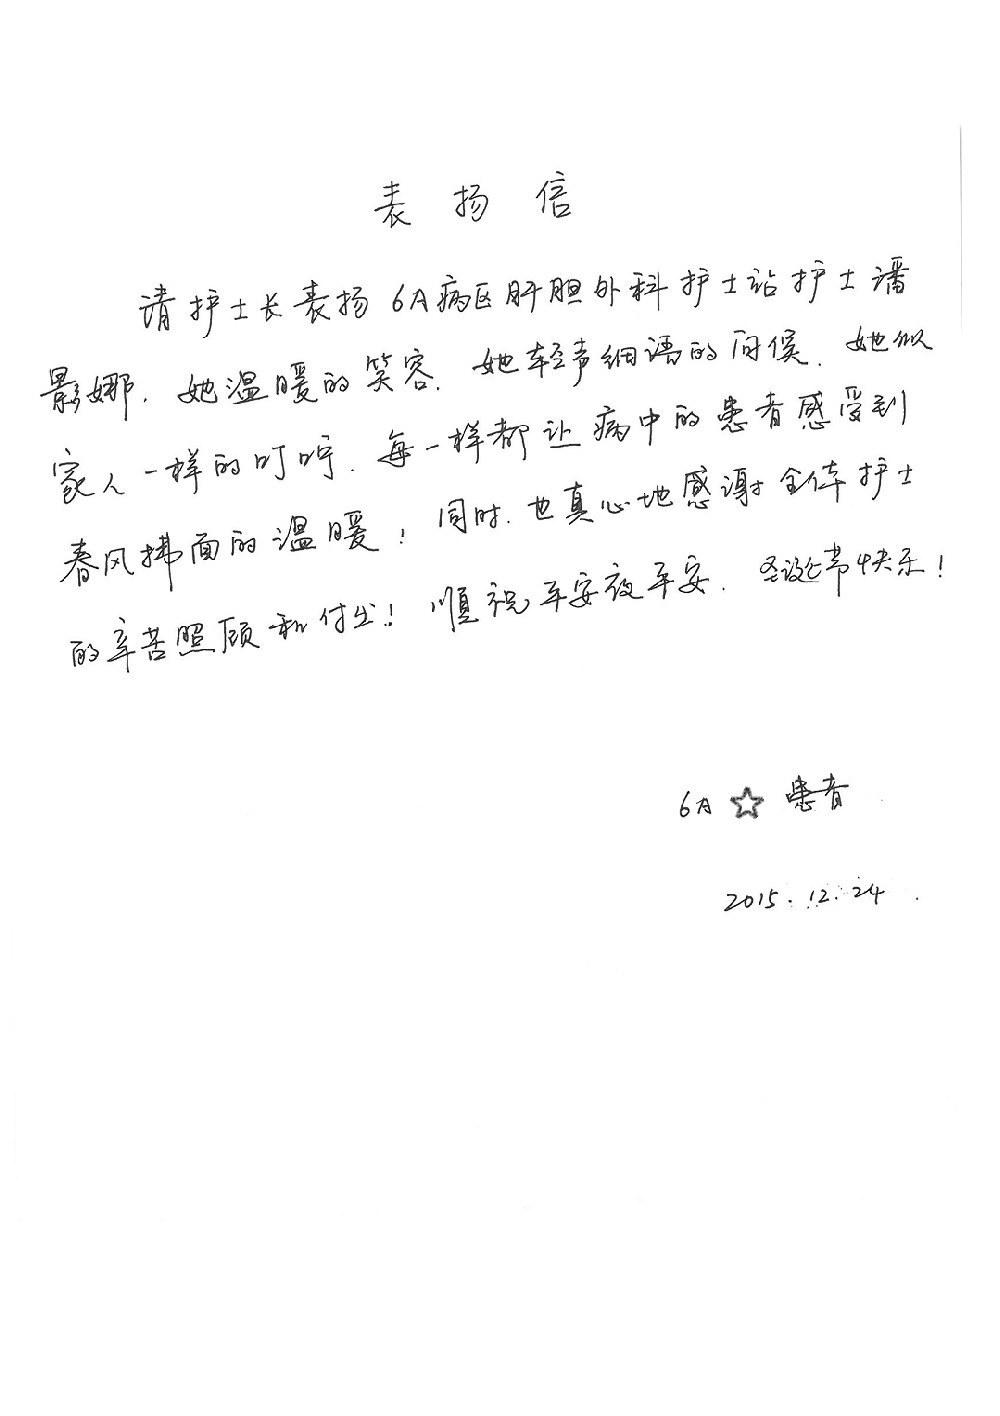 表扬信
请护士长表扬6A病区肝胆外科护士站护士潘
影娜.她温暖的笑容.她轻声细语的问候.她似
家人一样的叮咛.每一样都让病中的患者感受到
春风拂面的温暖!同时.也真心地感谢全体护士
的辛苦照顾和付出!顺祝平安夜平安.圣诞节快乐!
6A☆患者
2015.12.24